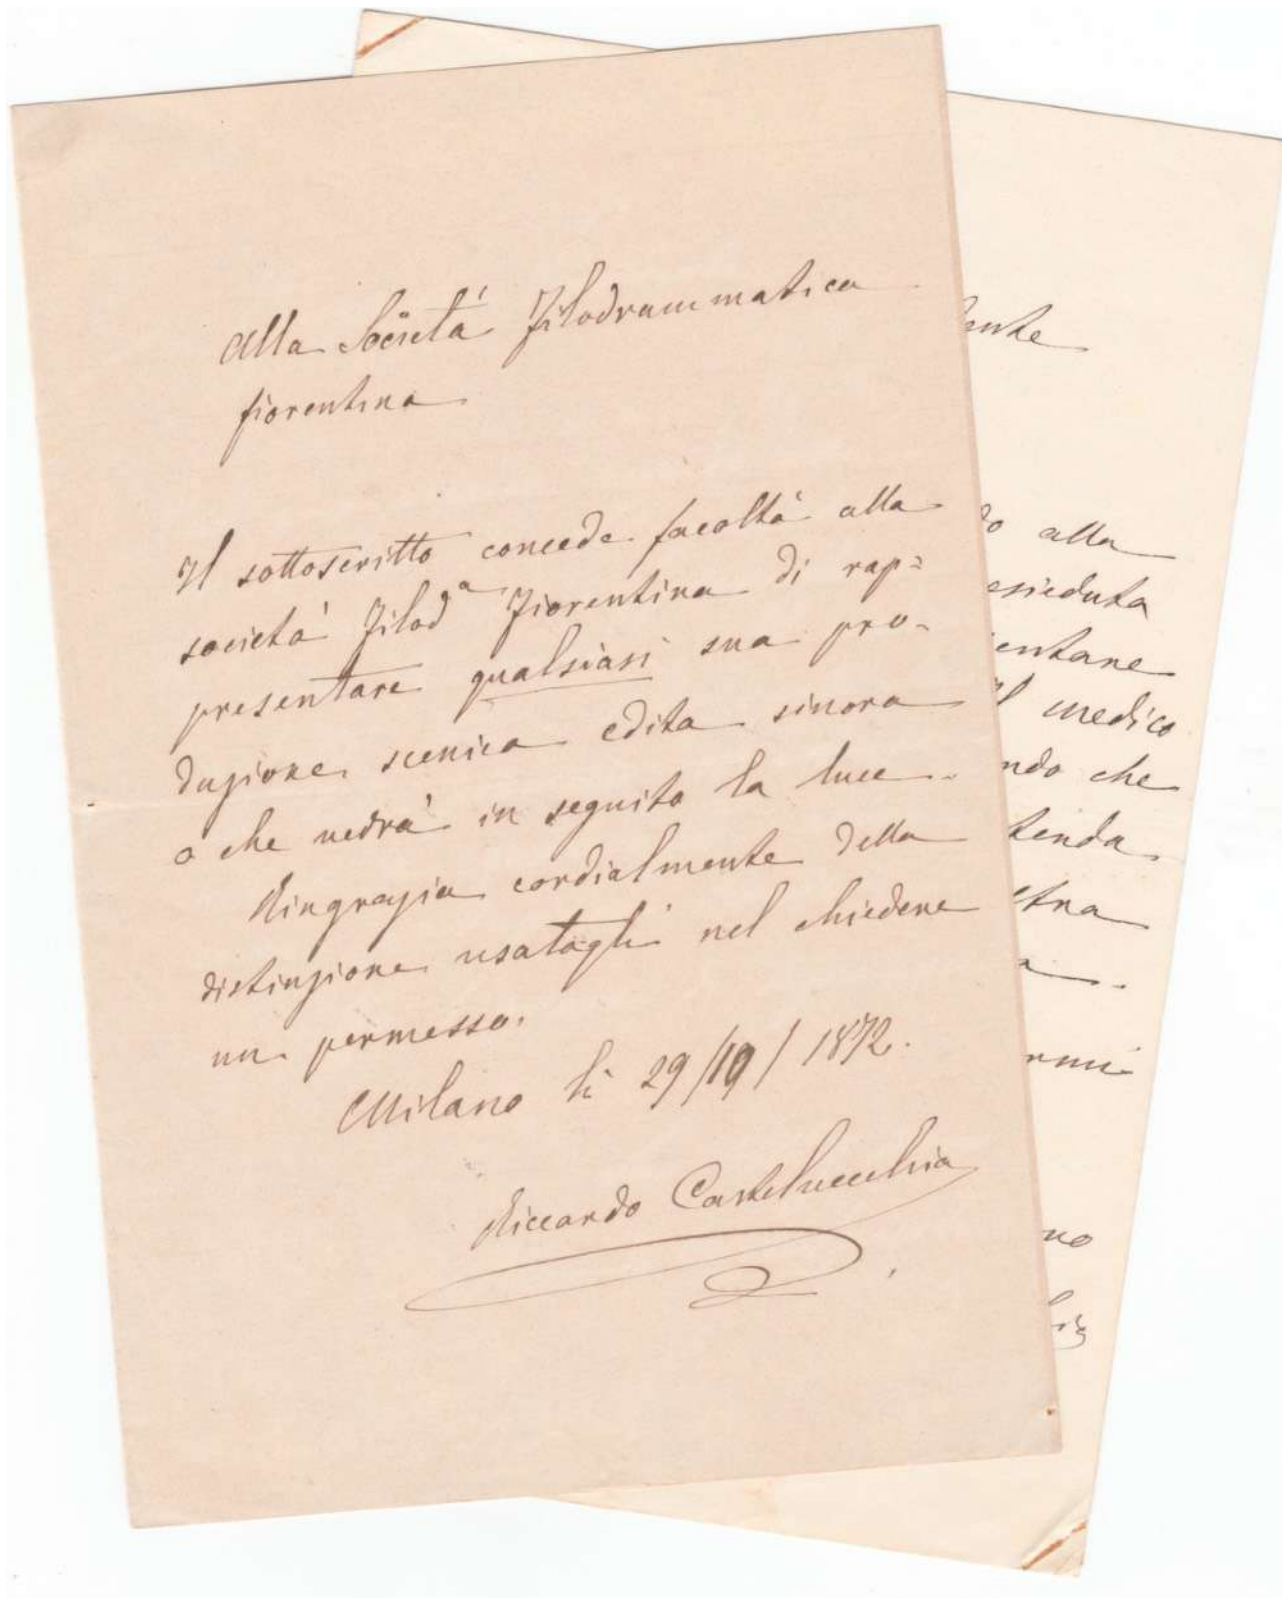 Alla Società Filodrammatica
fiorentina
Il sottoscritto concede facoltà alla
società Filodᵃ Fiorentina di rap=
presentare qualsiasi sua pro-
duzione scenica edita sinora
o che vedrà in seguito la luce.
Ringrazia cordialmente della
distinzione usatagli nel chiedere
un permesso.
Milano li 29/10/1872.
Riccardo Castelvecchio
do alla
esieduta
entare
Il medico
ndo che
tenda
stra
a.
rmi
no